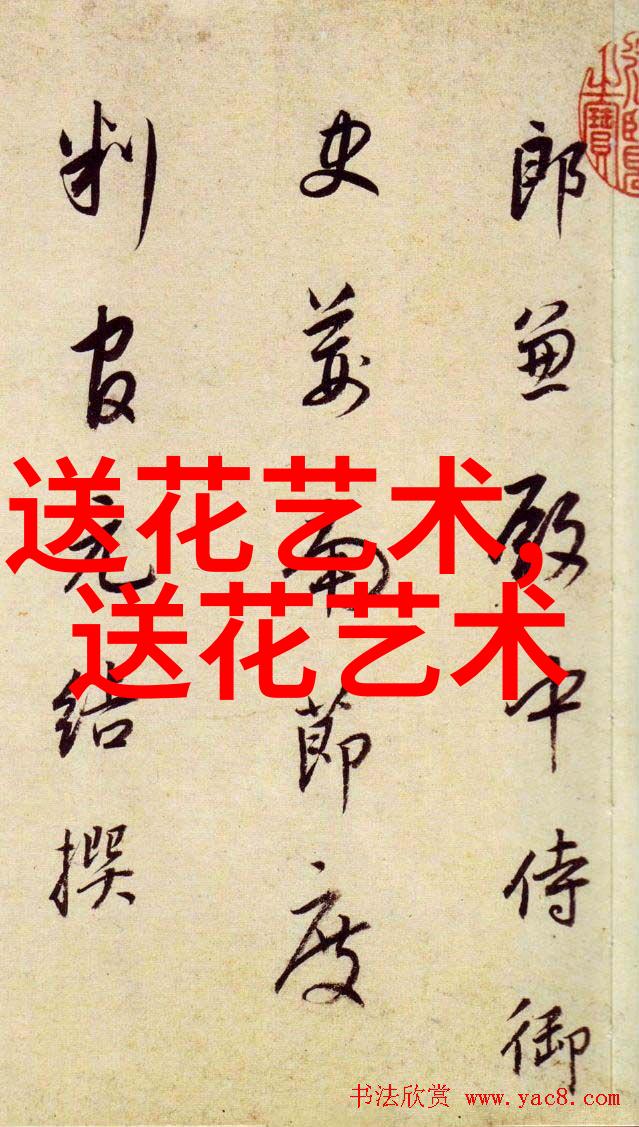 郎兼殿中侍御
史荊南節度
判官元結撰
送花艺术,
送花艺术
书法欣赏 www.yac8.com